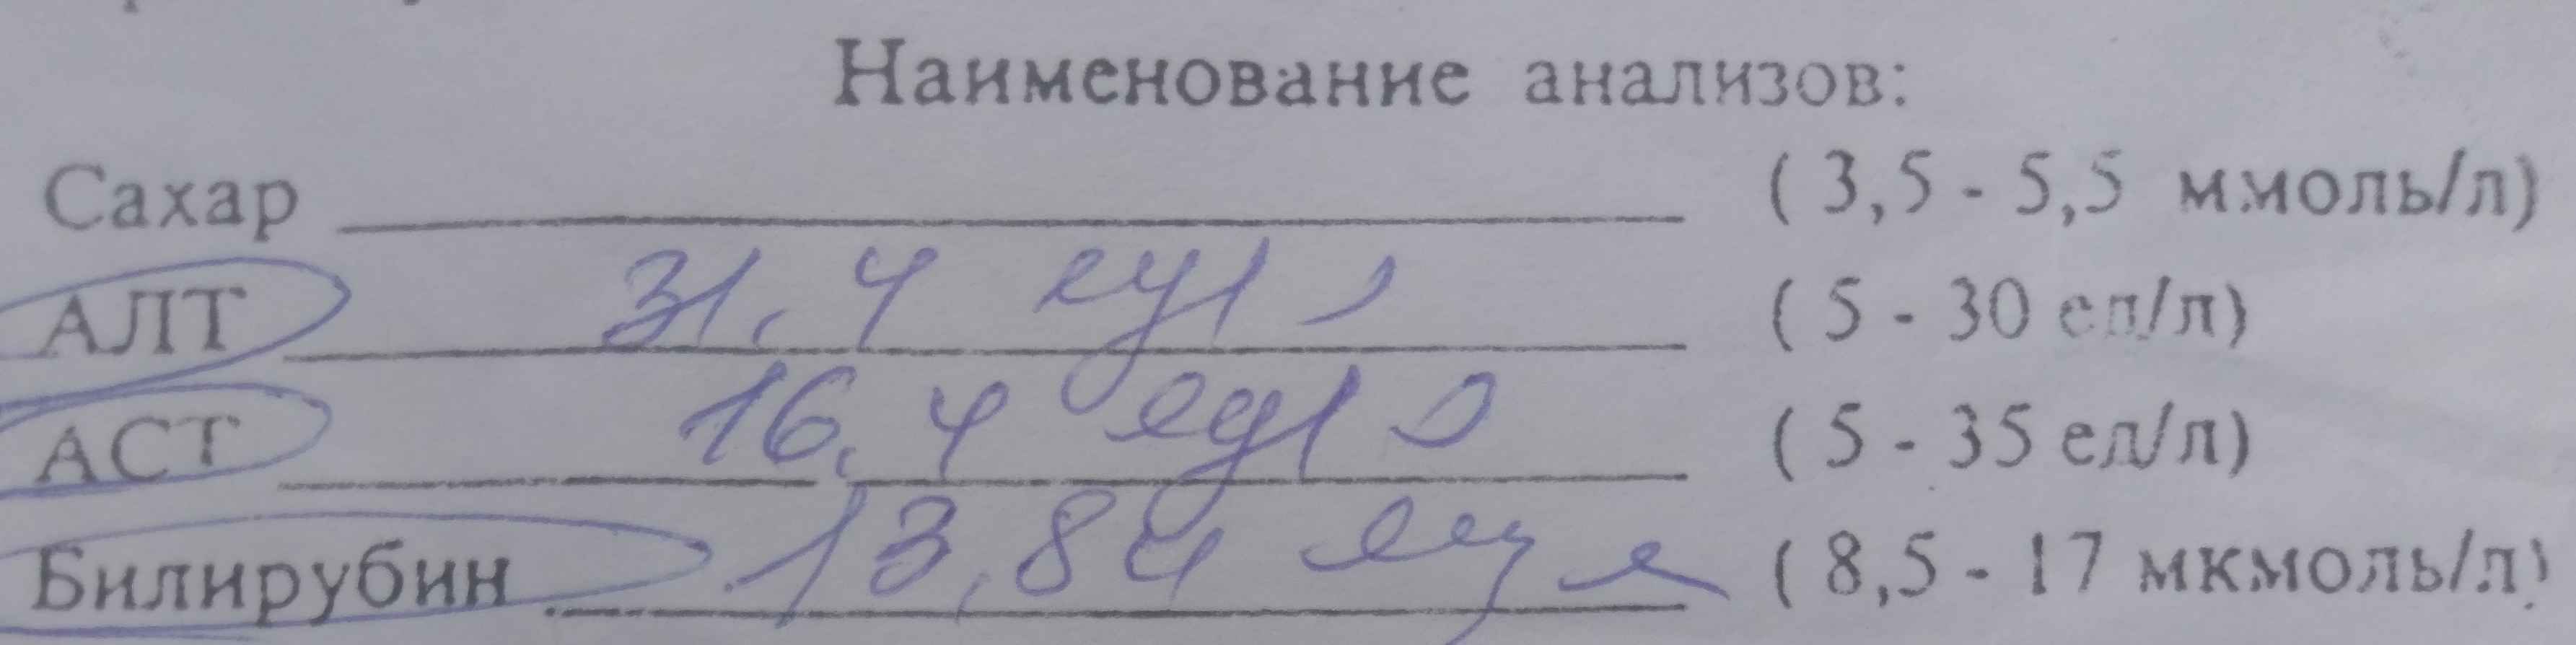 Наименование анализов:
Сахар ( 3,5 - 5,5 ммоль/л)
АЛТ 31,4 ед/л ( 5 - 30 ед/л)
АСТ 16,4 ед/л ( 5 - 35 ед/л)
Билирубин 13,84 ( 8,5 - 17 мкмоль/л)